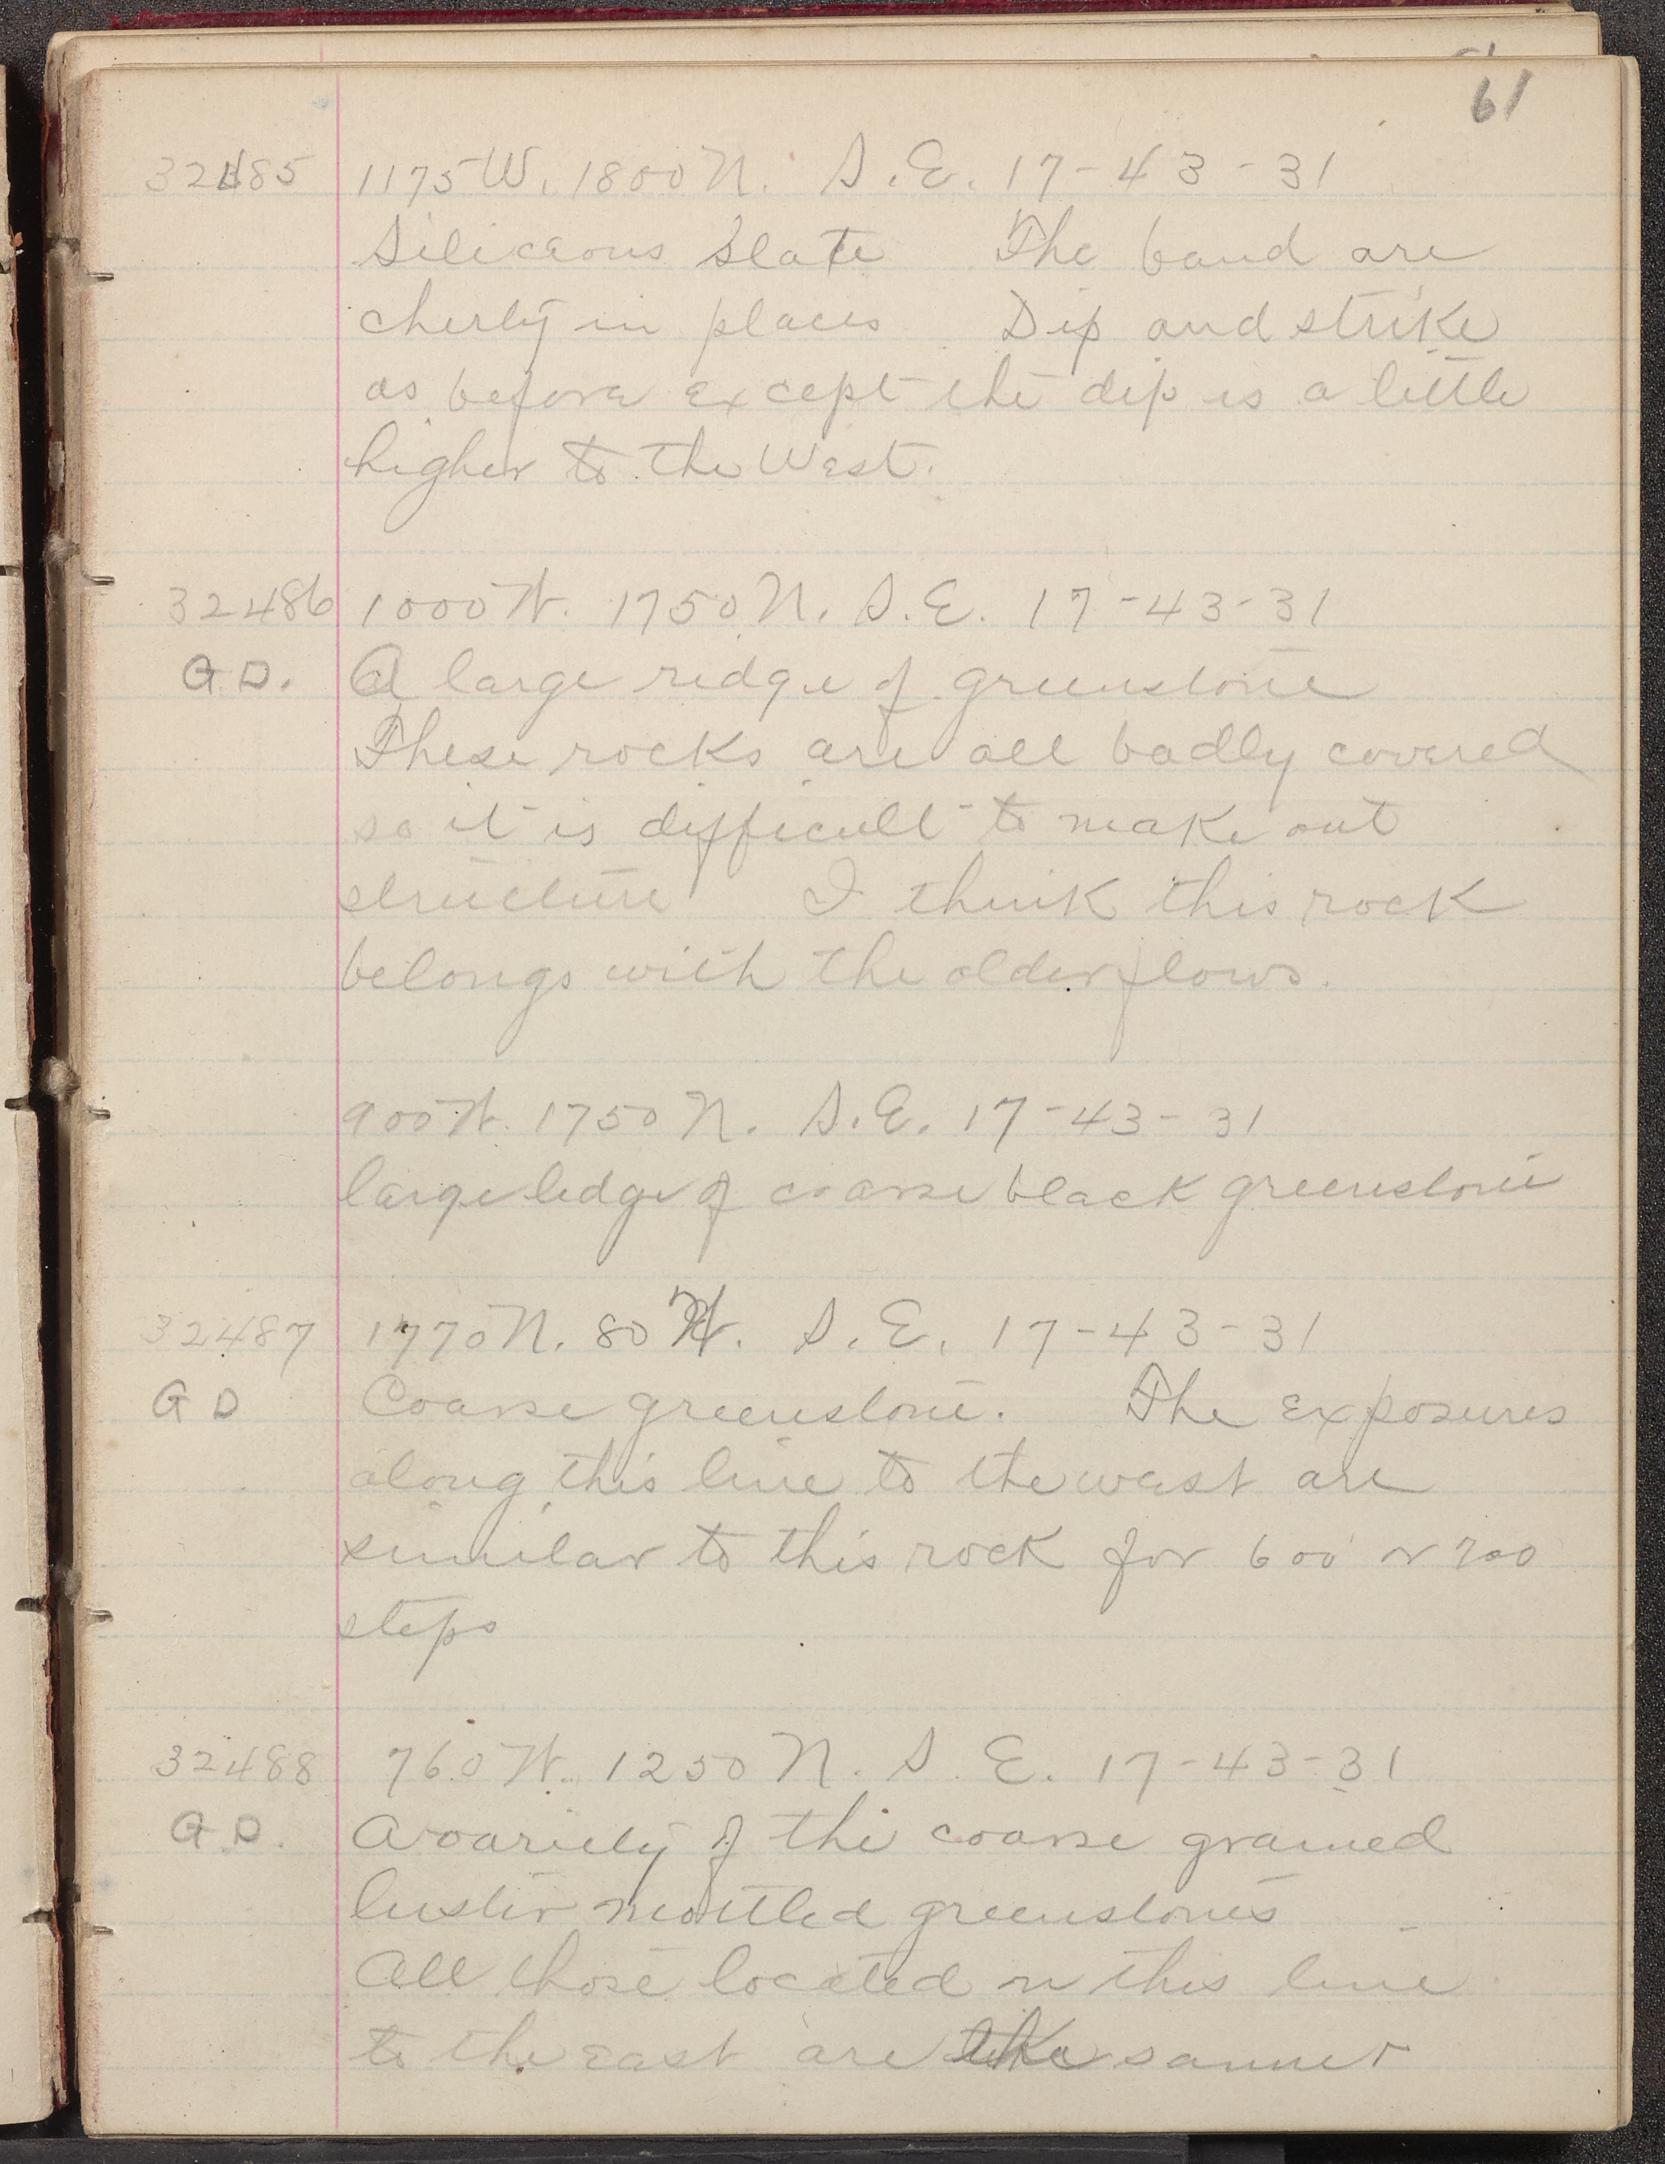 61
32485 1175 W. 1800 N. S.E. 17-43-31
Siliceous Slate The band are
cherty in places Dip and strike
as before except the dip is a little
higher to the West.
32486 1000 W. 1750 N. S.E. 17-43-31
G.D. A large ridge of greenstone
These rocks are all badly covered
so it is difficult to make out
structure I think this rock
belongs with the older flows.
900 W. 1750 N. S.E. 17-43-31
large ledge of coarse black greenstone
32487 1770 N. 80 W. S.E. 17-43-31
G D Coarse greenstone. The exposures
along this line to the west are
similar to this rock for 600 or 700
steps
32488 760 W. 1250 N. S.E. 17-43-31
G.D. A variety of the coarse grained
luster mottled greenstones
All those located on this line
to the east are the same